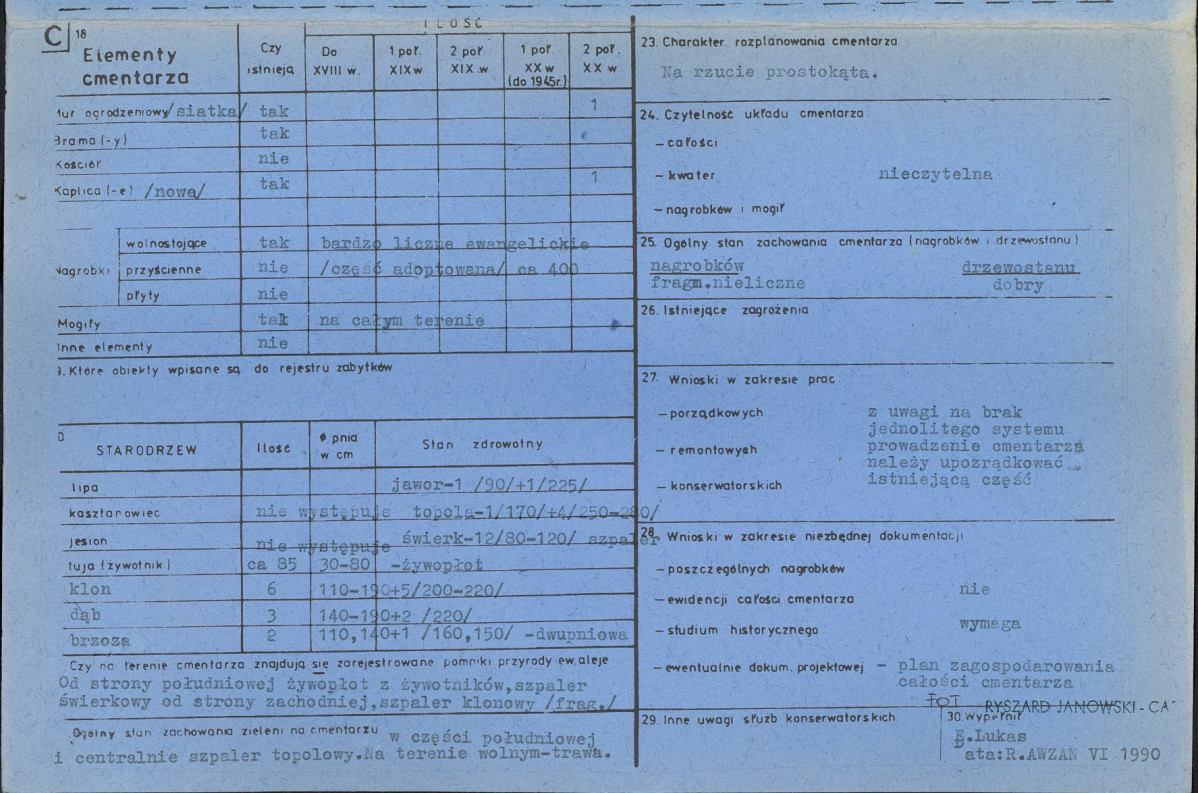 C 18
Elementy cmentarza
Czy istnieją
ILOŚĆ
Do XVIII w.
1 poł. XIX w
2 poł XIX w
1 poł. XX w (do 1945r.)
2 poł. XX w
ur ogrodzeniowy /siatka/ tak 1
rama (-y) tak
Kościół nie
Kaplica (-e) /nowa/ tak 1
Nagrobki
wolnostojące tak bardzo liczne ewangelickie
przyścienne nie /część adoptowana/ ca 400
płyty nie
Mogiły tak na całym terenie
Inne elementy nie
. Które obiekty wpisane są do rejestru zabytków
STARODRZEW Ilość ø pnia w cm Stan zdrowotny
lipa jawor-1 /90/+1/225/
kasztanowiec nie występuje topola-1/170/+4/250-280/
jesion nie występuje świerk-12/80-120/ szpaler
tuja (żywotnik) ca 85 30-80 -żywopłot
klon 6 110-190+5/200-220/
dąb 3 140-190+2 /220/
brzoza 2 110,140+1 /160,150/ -dwupniowa
Czy na terenie cmentarza znajdują się zarejestrowane pomniki przyrody ew. aleje
Od strony południowej żywopłot z żywotników,szpaler
świerkowy od strony zachodniej,szpaler klonowy /frag./
Ogólny stan zachowania zieleni na cmentarzu w części południowej
i centralnie szpaler topolowy.Na terenie wolnym-trawa.
23. Charakter rozplanowania cmentarza
Na rzucie prostokąta.
24. Czytelność układu cmentarza:
- całości
- kwater nieczytelna
- nagrobków i mogił
25. Ogólny stan zachowania cmentarza (nagrobków i drzewostanu)
nagrobków drzewostanu
fragm.nieliczne dobry
26. Istniejące zagrożenia
27. Wnioski w zakresie prac:
- porządkowych z uwagi na brak
jednolitego systemu
- remontowych prowadzenie cmentarza
należy upozrądkować
- konserwatorskich istniejącą część
28. Wnioski w zakresie niezbędnej dokumentacji
- poszczególnych nagrobków
- ewidencji całości cmentarza nie
- studium historycznego wymaga
- ewentualnie dokum. projektowej - plan zagospodarowania
całości cmentarza
FOT RYSZARD JANOWSKI - CA
29. Inne uwagi służb konserwatorskich
30. Wypełnił
E.Lukas
ata:R.AWZAN VI 1990